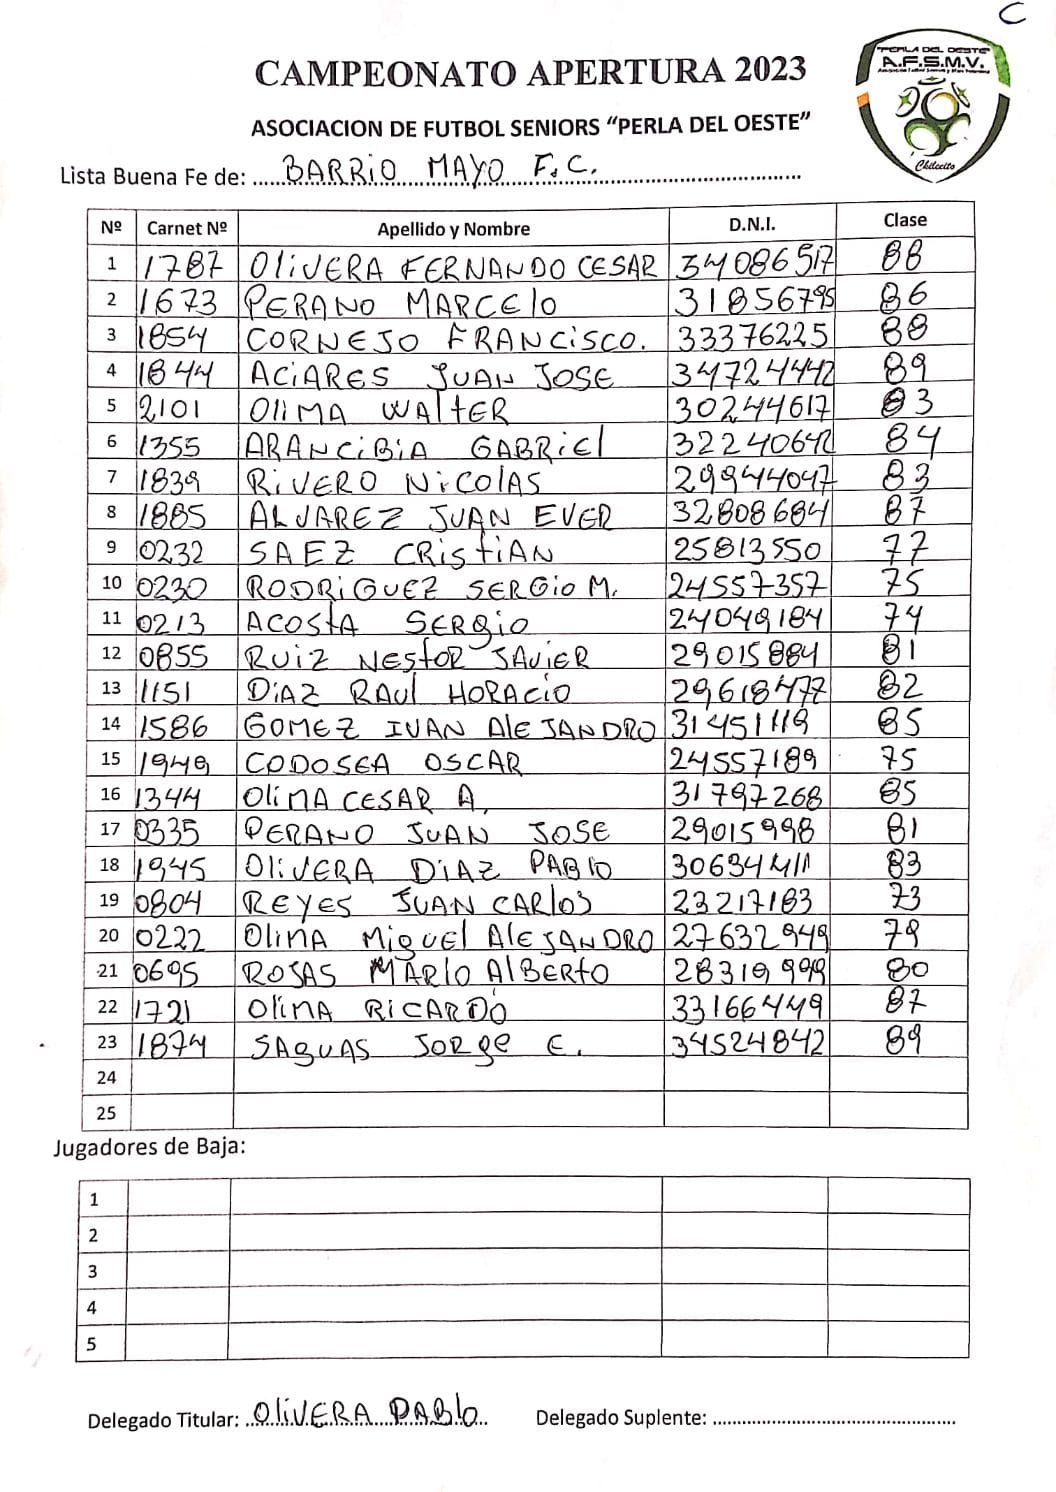 C
CAMPEONATO APERTURA 2023
PERLA DEL OESTE
A.F.S.M.V.
Chilecito
ASOCIACION DE FUTBOL SENIORS “PERLA DEL OESTE”
Lista Buena Fe de: BARRIO MAYO F.C.
Nº Carnet Nº Apellido y Nombre D.N.I. Clase
1 1787 OLIVERA FERNANDO CESAR 34086517 88
2 1673 PERANO MARCELO 31856795 86
3 1854 CORNEJO FRANCISCO. 33376225 88
4 1844 ACIARES JUAN JOSE 34724442 89
5 2101 OLIMA WALTER 30244617 83
6 1355 ARANCIBIA GABRIEL 32240642 84
7 1839 RIVERO NICOLAS 29944047 83
8 1885 ALVAREZ JUAN EVER 32808684 87
9 0232 SAEZ CRISTIAN 25813550 77
10 0230 RODRIGUEZ SERGIO M. 24557357 75
11 0213 ACOSTA SERGIO 24049184 74
12 0855 RUIZ NESTOR JAVIER 29015884 81
13 1151 DIAZ RAUL HORACIO 29618477 82
14 1586 GOMEZ IVAN ALEJANDRO 31451119 85
15 1949 CODOSEA OSCAR 24557189 75
16 1344 OLIMA CESAR A. 31797268 85
17 0335 PERANO JUAN JOSE 29015998 81
18 1945 OLIVERA DIAZ PABLO 30694411 83
19 0804 REYES JUAN CARLOS 23217183 73
20 0222 OLIMA MIGUEL ALEJANDRO 27632949 79
21 0695 ROSAS MARIO ALBERTO 28319999 80
22 1721 OLIMA RICARDO 33166449 87
23 1874 SAGUAS JORGE E. 34524842 89
24
25
Jugadores de Baja:
1
2
3
4
5
Delegado Titular: OLIVERA PABLO Delegado Suplente: